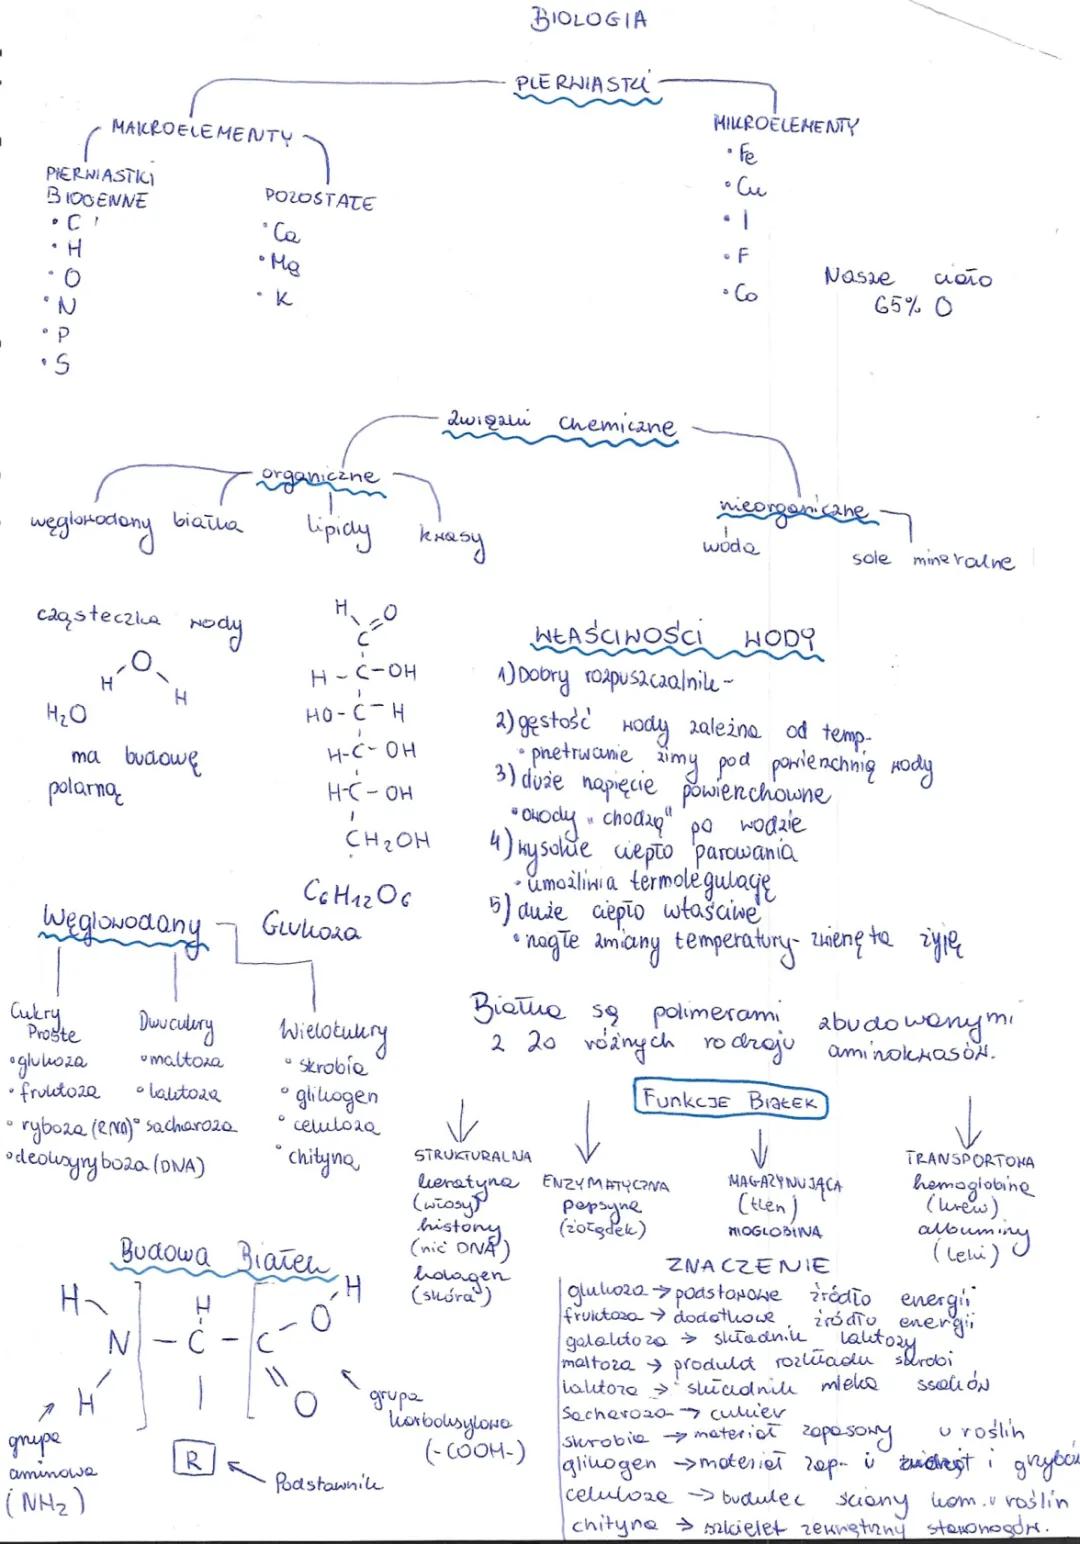 BIOLOGIA
PIERWIASTKI
MAKROELEMENTY
MIKROELEMENTY
PIERWIASTKI
BIOGENNE
• C
• H
• O
• N
• P
• S
POZOSTAŁE
• Ca
• Mg
• K
• Fe
• Cu
• I
• F
• Co
Nasze ciało
65% O
związki chemiczne
organiczne
nieorganiczne
węglowodany białka lipidy kwasy
woda
sole mineralne
cząsteczka wody
O
H H
H₂O
ma budowę
polarną
H O
C
H-C-OH
HO-C-H
H-C-OH
H-C-OH
CH₂OH
C₆H₁₂O₆
Glukoza
WŁAŚCIWOŚCI WODY
1) Dobry rozpuszczalnik -
2) gęstość wody zależna od temp.
• przetrwanie zimy pod powierzchnią wody
3) duże napięcie powierzchowne
• owady "chodzą" po wodzie
4) wysokie ciepło parowania
• umożliwia termolegulację
5) duże ciepło właściwe
• nagłe zmiany temperatury- żyją
Węglowodany
Cukry
Proste
• glukoza
• fruktoza
• ryboza (RNA)
• deoksyryboza (DNA)
Dwucukry
• maltoza
• laktoza
• sacharoza
Wielocukry
• skrobia
• glikogen
• celuloza
• chityna
Białka są polimerami zbudowanymi
z 20 różnych rodzaju aminokwasów.
FUNKCJE BIAŁEK
STRUKTURALNA
keratyna
(włosy)
histony
(nić DNA)
kolagen
(skóra)
ENZYMATYCZNA
pepsyna
(żołądek)
MAGAZYNUJĄCA
(tlen)
MIOGLOBINA
TRANSPORTOWA
hemoglobina
(krew)
albuminy
(leki)
Budowa Białek
H H H
N - C - C - O
H O
R
grupa
aminowa
(NH₂)
Podstawnik
grupa
karboksylowa
(-COOH-)
ZNACZENIE
glukoza → podstawowe źródło energii
fruktoza → dodatkowe źródło energii
galaktoza → składnik laktozy
maltoza → produkt rozkładu skrobi
laktoza → składnik mleka ssaków
Sacharoza → cukier
skrobia → materiał zapasowy u roślin
glikogen → materiał zap. u zwierząt i grzybów
celuloza → budulec ściany kom. u roślin
chityna → szkielet zewnętrzny stawonogów.